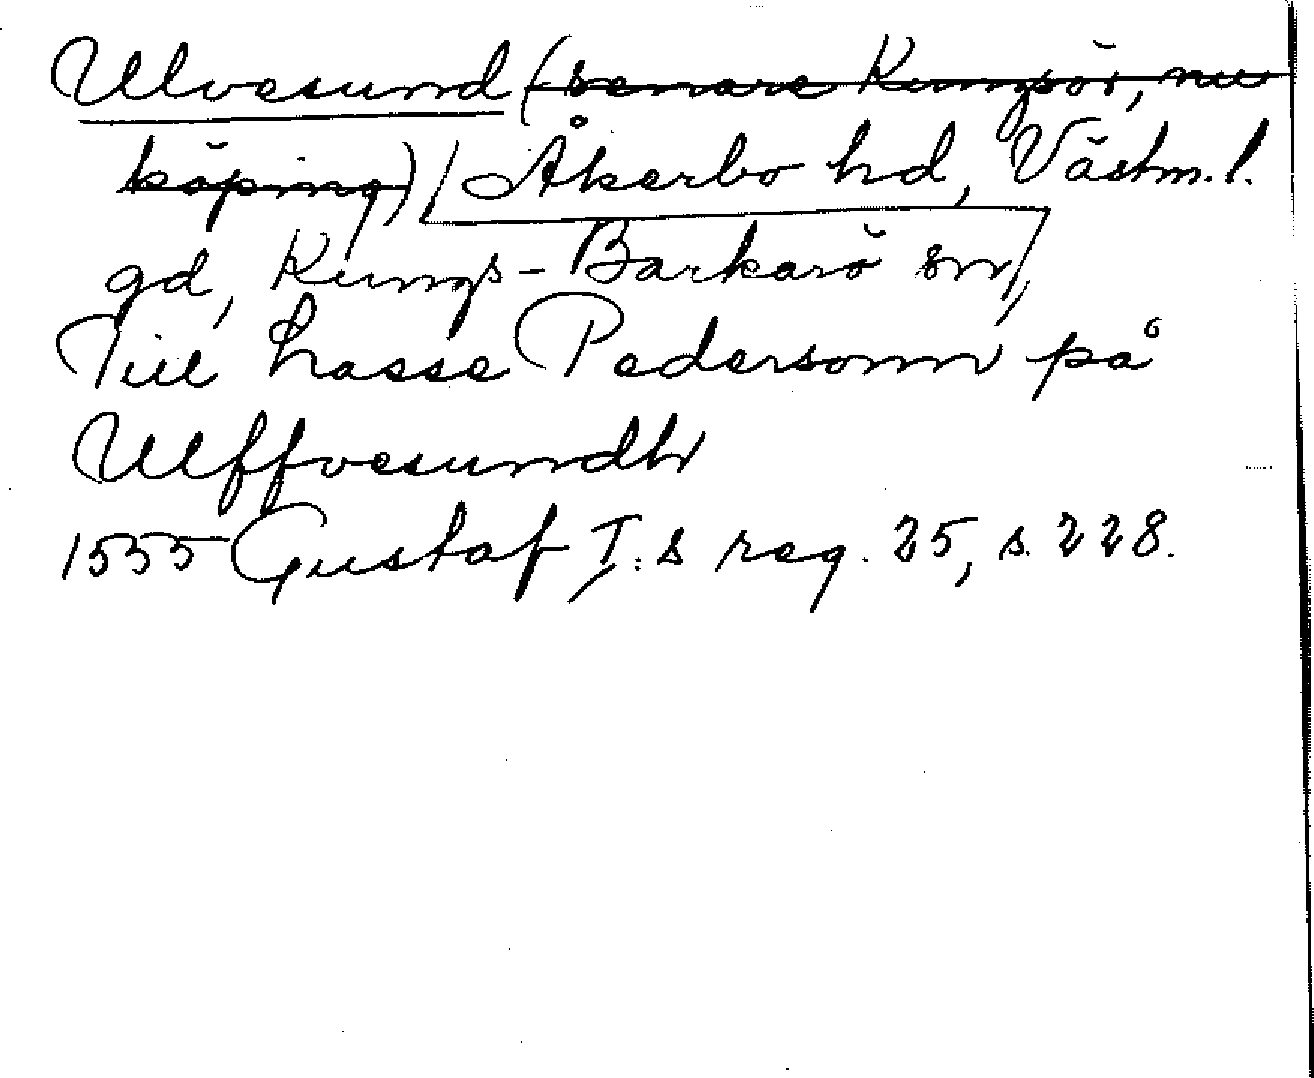 Ulvesund (senare Kungsör, nu
köping) Åkerbo hd, Västm. l.
gd, Kungs-Barkarö sn,
Till Lasse Pedersonn på
Ulffvesundh
1555 Gustaf I:s reg. 25, s. 228.